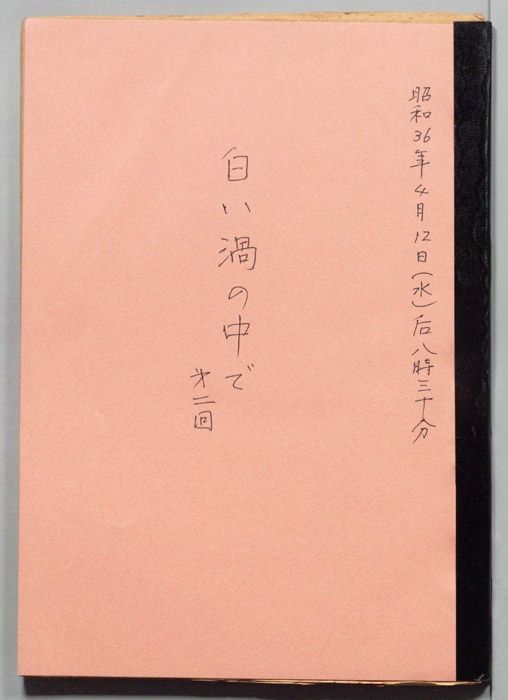 昭和36年4月12日(水)后八時三十分
白い渦の中で
才二回